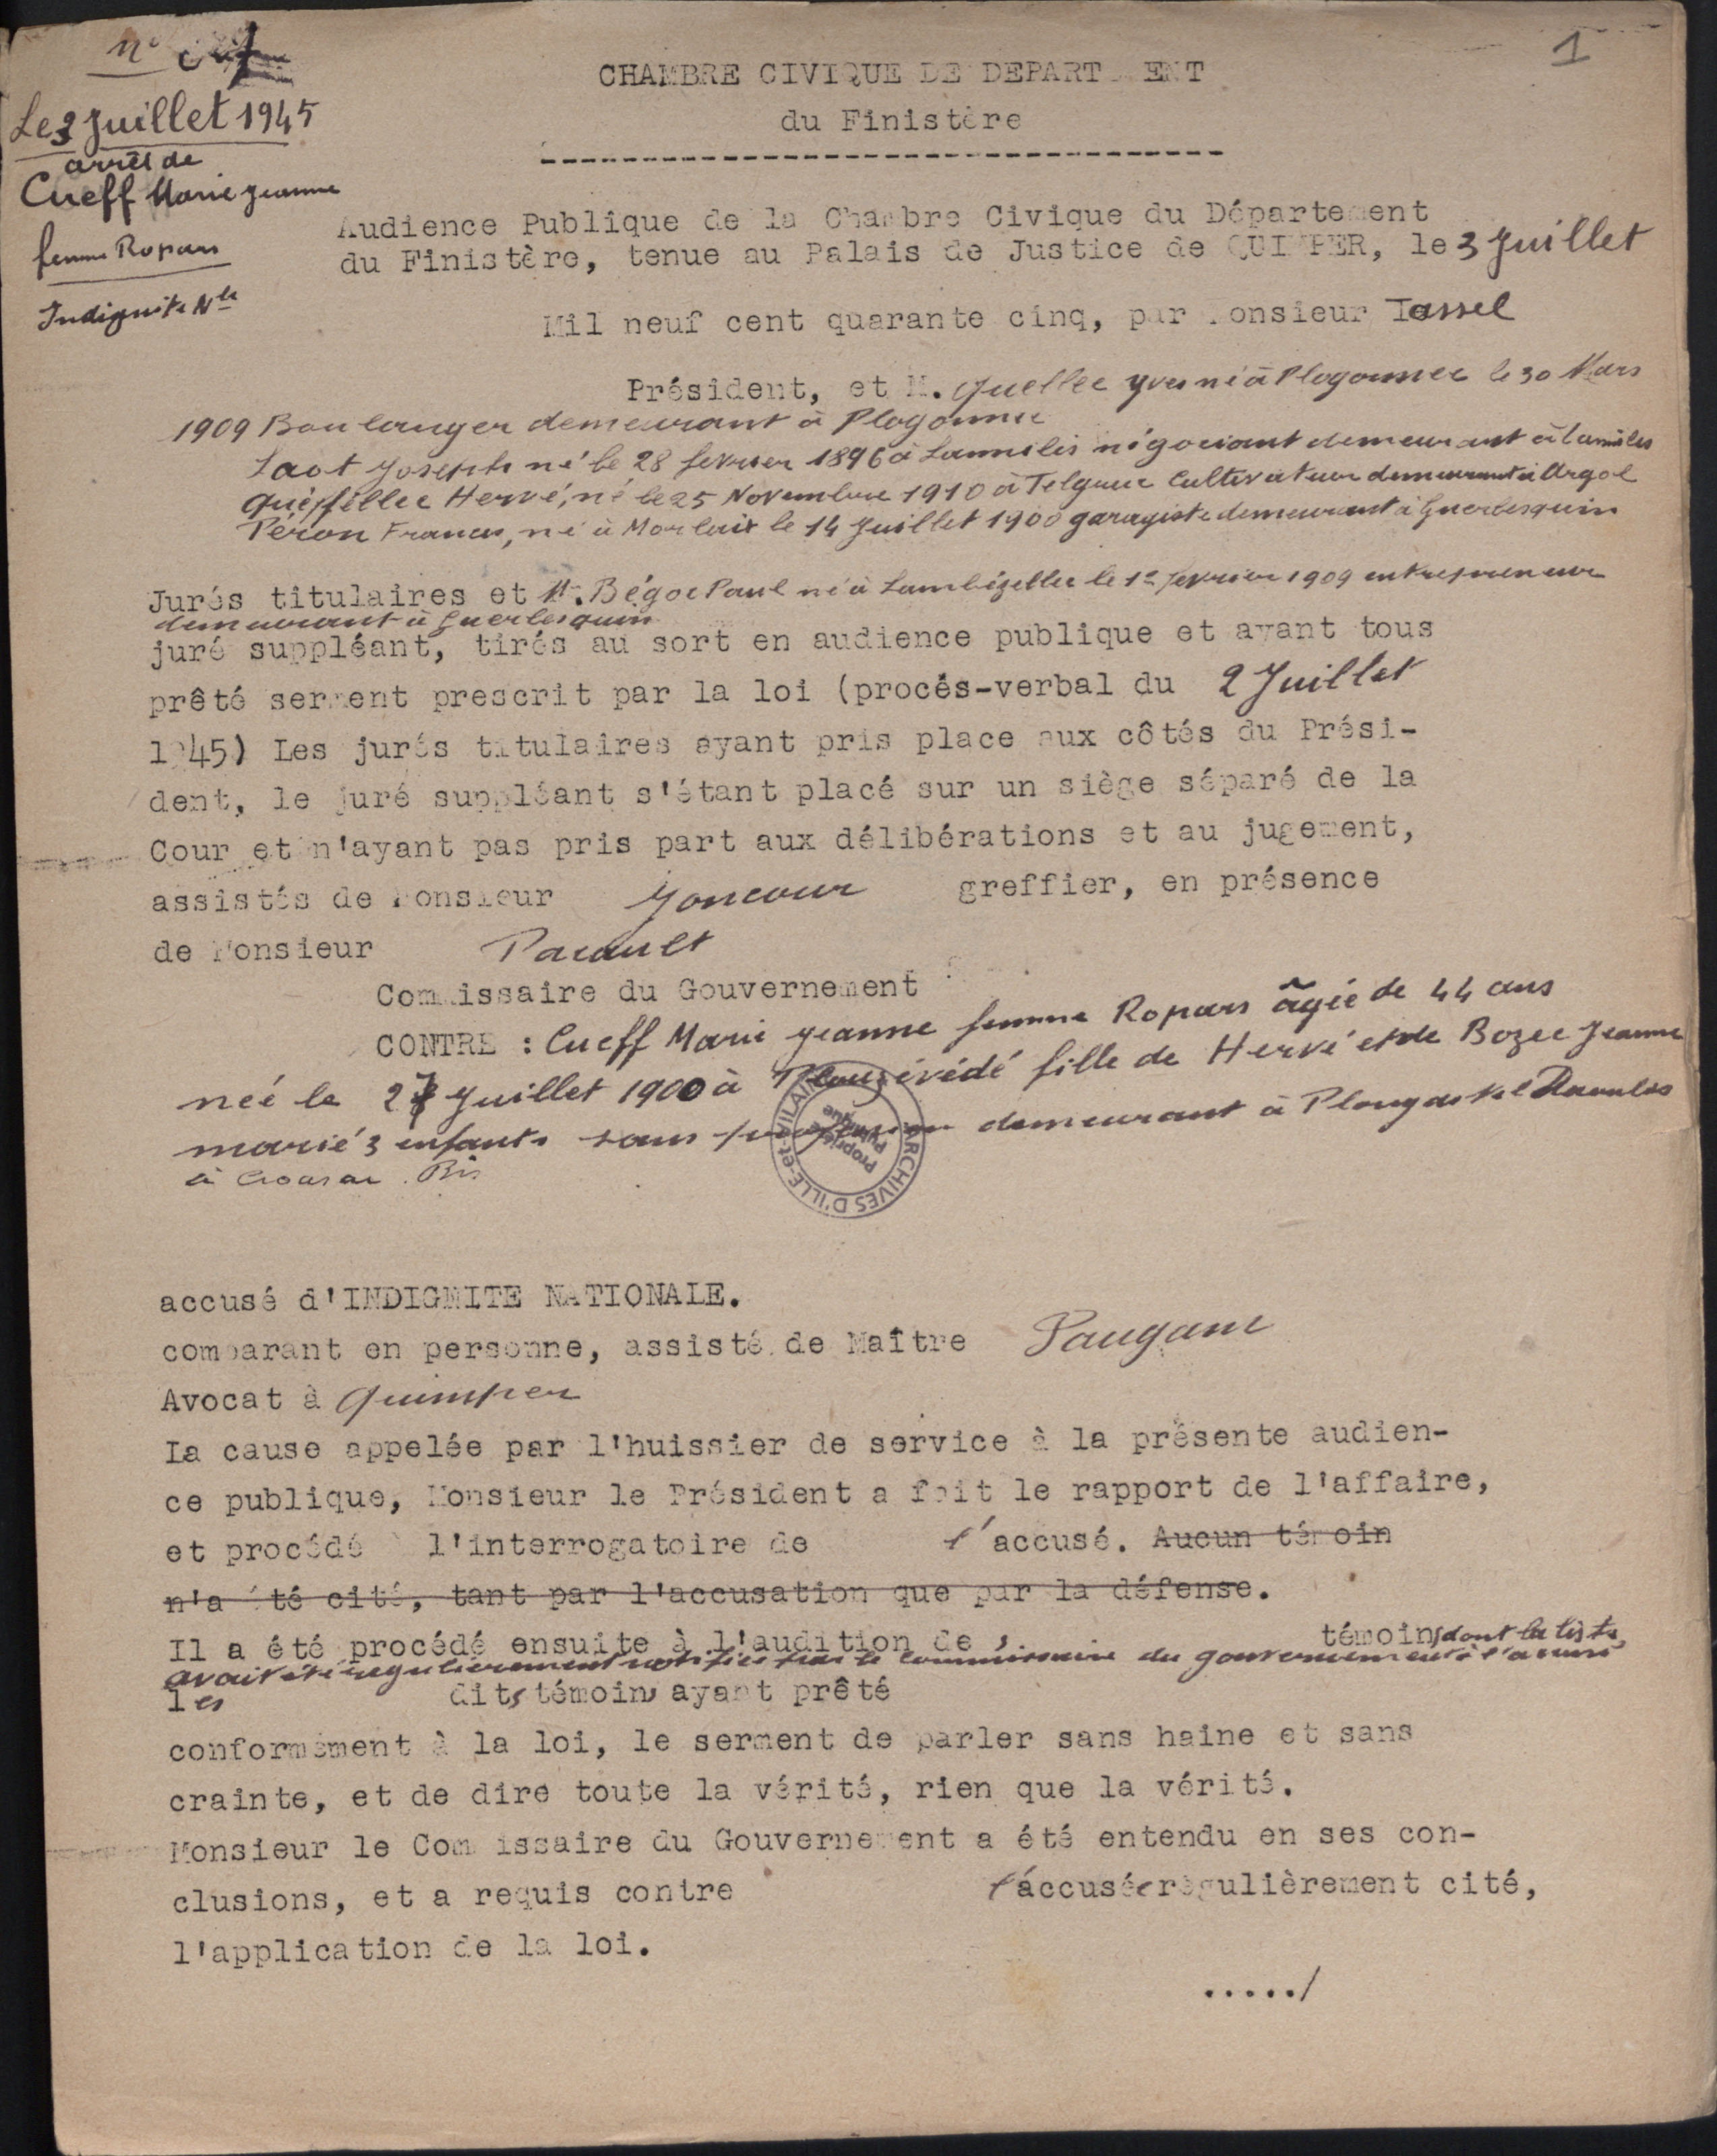 n°
1
Le 3 Juillet 1945
arrêt de
Cueff Marie Jeanne
femme Ropars
Indignité Nle
CHAMBRE CIVIQUE DE DEPARTEMENT
du Finistère
Audience Publique de la Chambre Civique du Département
du Finistère, tenue au Palais de Justice de QUIMPER, le 3 Juillet
Mil neuf cent quarante cinq, par Monsieur Tassel
Président, et M. Quellec Yves né à Plogonnec le 30 Mars
1909 Boulanger demeurant à Plogonnec
Laot Joseph né le 28 fevrier 1896 à Lannilis négociant demeurant à Lannilis
Quéffellec Hervé, né le 25 Novembre 1910 à Telgruc Cultivateur demeurant à Argol
Péron Francis, né à Morlaix le 14 Juillet 1900 garagiste demeurant à Guerlesquin
Jurés titulaires et M. Bégoc Paul né à Lambézellec le 1er fevrier 1909 entrepreneur
demeurant à Guerlesquin
juré suppléant, tirés au sort en audience publique et ayant tous
prêté serment prescrit par la loi (procès-verbal du 2 Juillet
1945) Les jurés titulaires ayant pris place aux côtés du Prési-
dent, le juré suppléant s'étant placé sur un siège séparé de la
Cour et n'ayant pas pris part aux délibérations et au jugement,
assistés de Monsieur Joncour greffier, en présence
de Monsieur
Commissaire du Gouvernement
CONTRE : Cueff Marie Jeanne femme Ropars âgée de 44 ans
née le 27 Juillet 1900 à Plouzévédé fille de Hervé et de Bozec Jeanne
marié 3 enfants sans profession demeurant à Plougastel Daoulas
à
ARCHIVES D'ILLE-et-VILAINE
Propriété Publique
accusé d'INDIGNITE NATIONALE.
comparant en personne, assisté de Maître Paugam
Avocat à Quimper
La cause appelée par l'huissier de service à la présente audien-
ce publique, Monsieur le Président a fait le rapport de l'affaire,
et procédé à l'interrogatoire de l'accusé. Aucun témoin
n'a été cité, tant par l'accusation que par la défense.
Il a été procédé ensuite à l'audition de s témoins dont la liste
avait été régulièrement notifiée par le commissaire du gouvernement à l'accusé
les dits témoins ayant prêté
conformément à la loi, le serment de parler sans haine et sans
crainte, et de dire toute la vérité, rien que la vérité.
Monsieur le Commissaire du Gouvernement a été entendu en ses con-
clusions, et a requis contre l'accusée régulièrement cité,
l'application de la loi.
...../